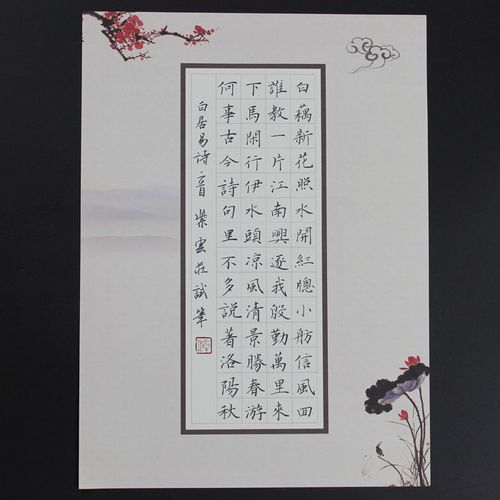 白藕新花照水開紅牕小舫信風回
誰教一片江南興逐我殷勤萬里來
下馬閑行伊水頭凉風清景勝春游
何事古今詩句里不多説著洛陽秋
白居易詩二首 紫雲莊試筆